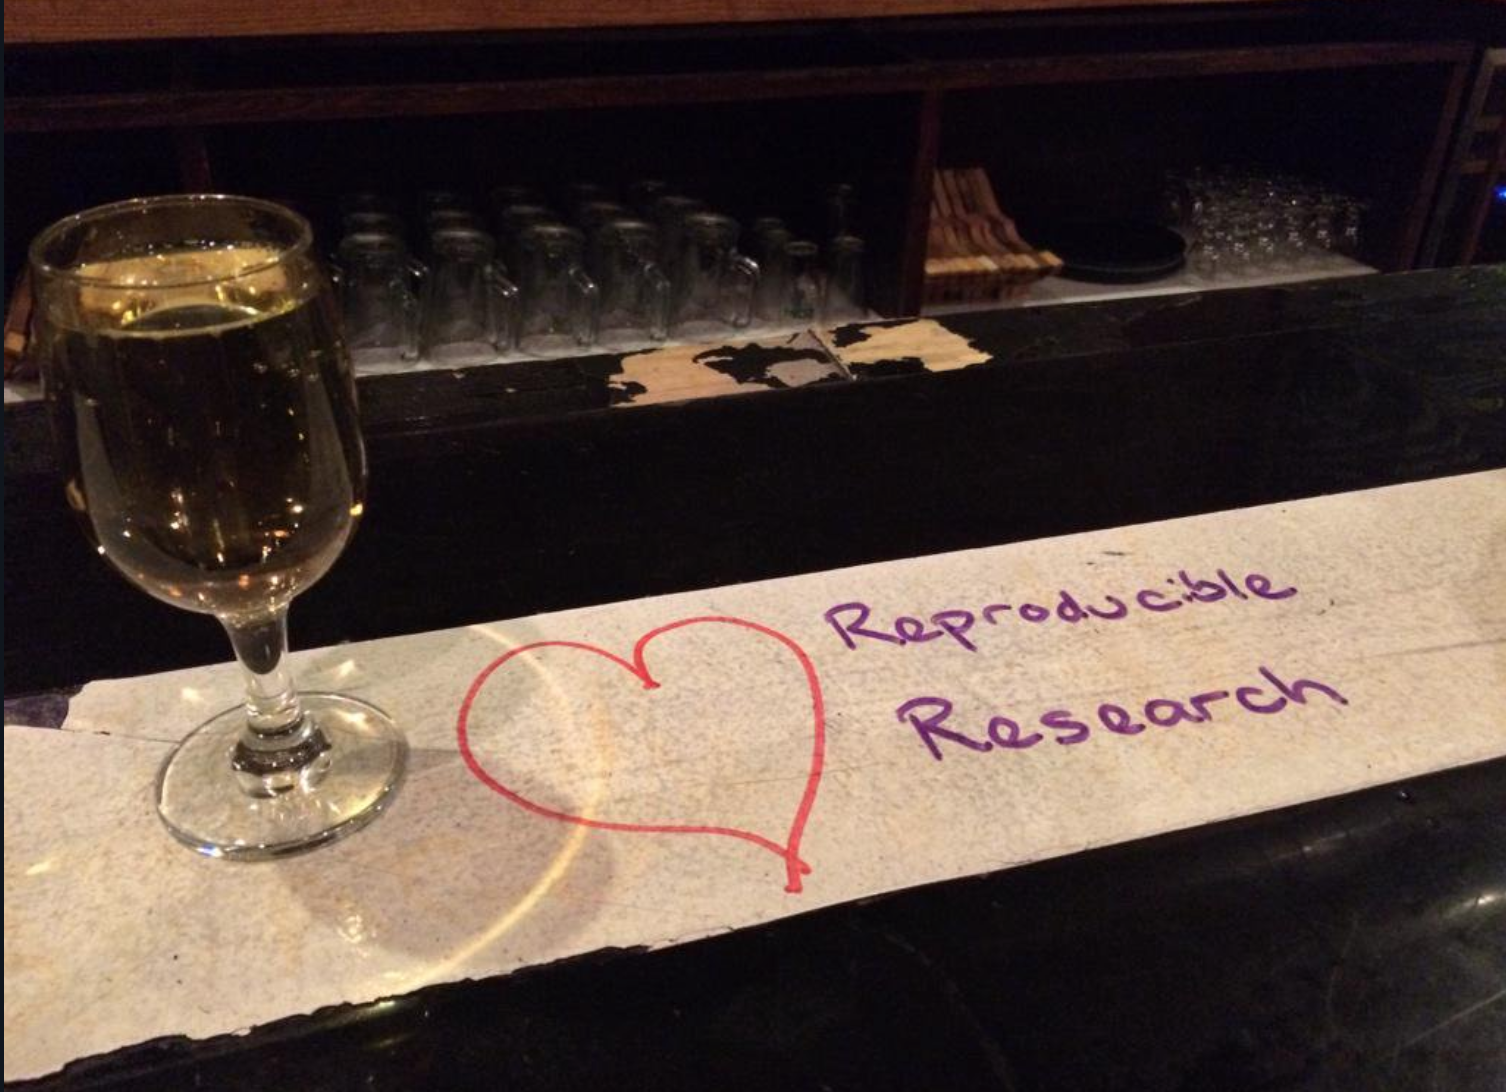 Reproducible
Research